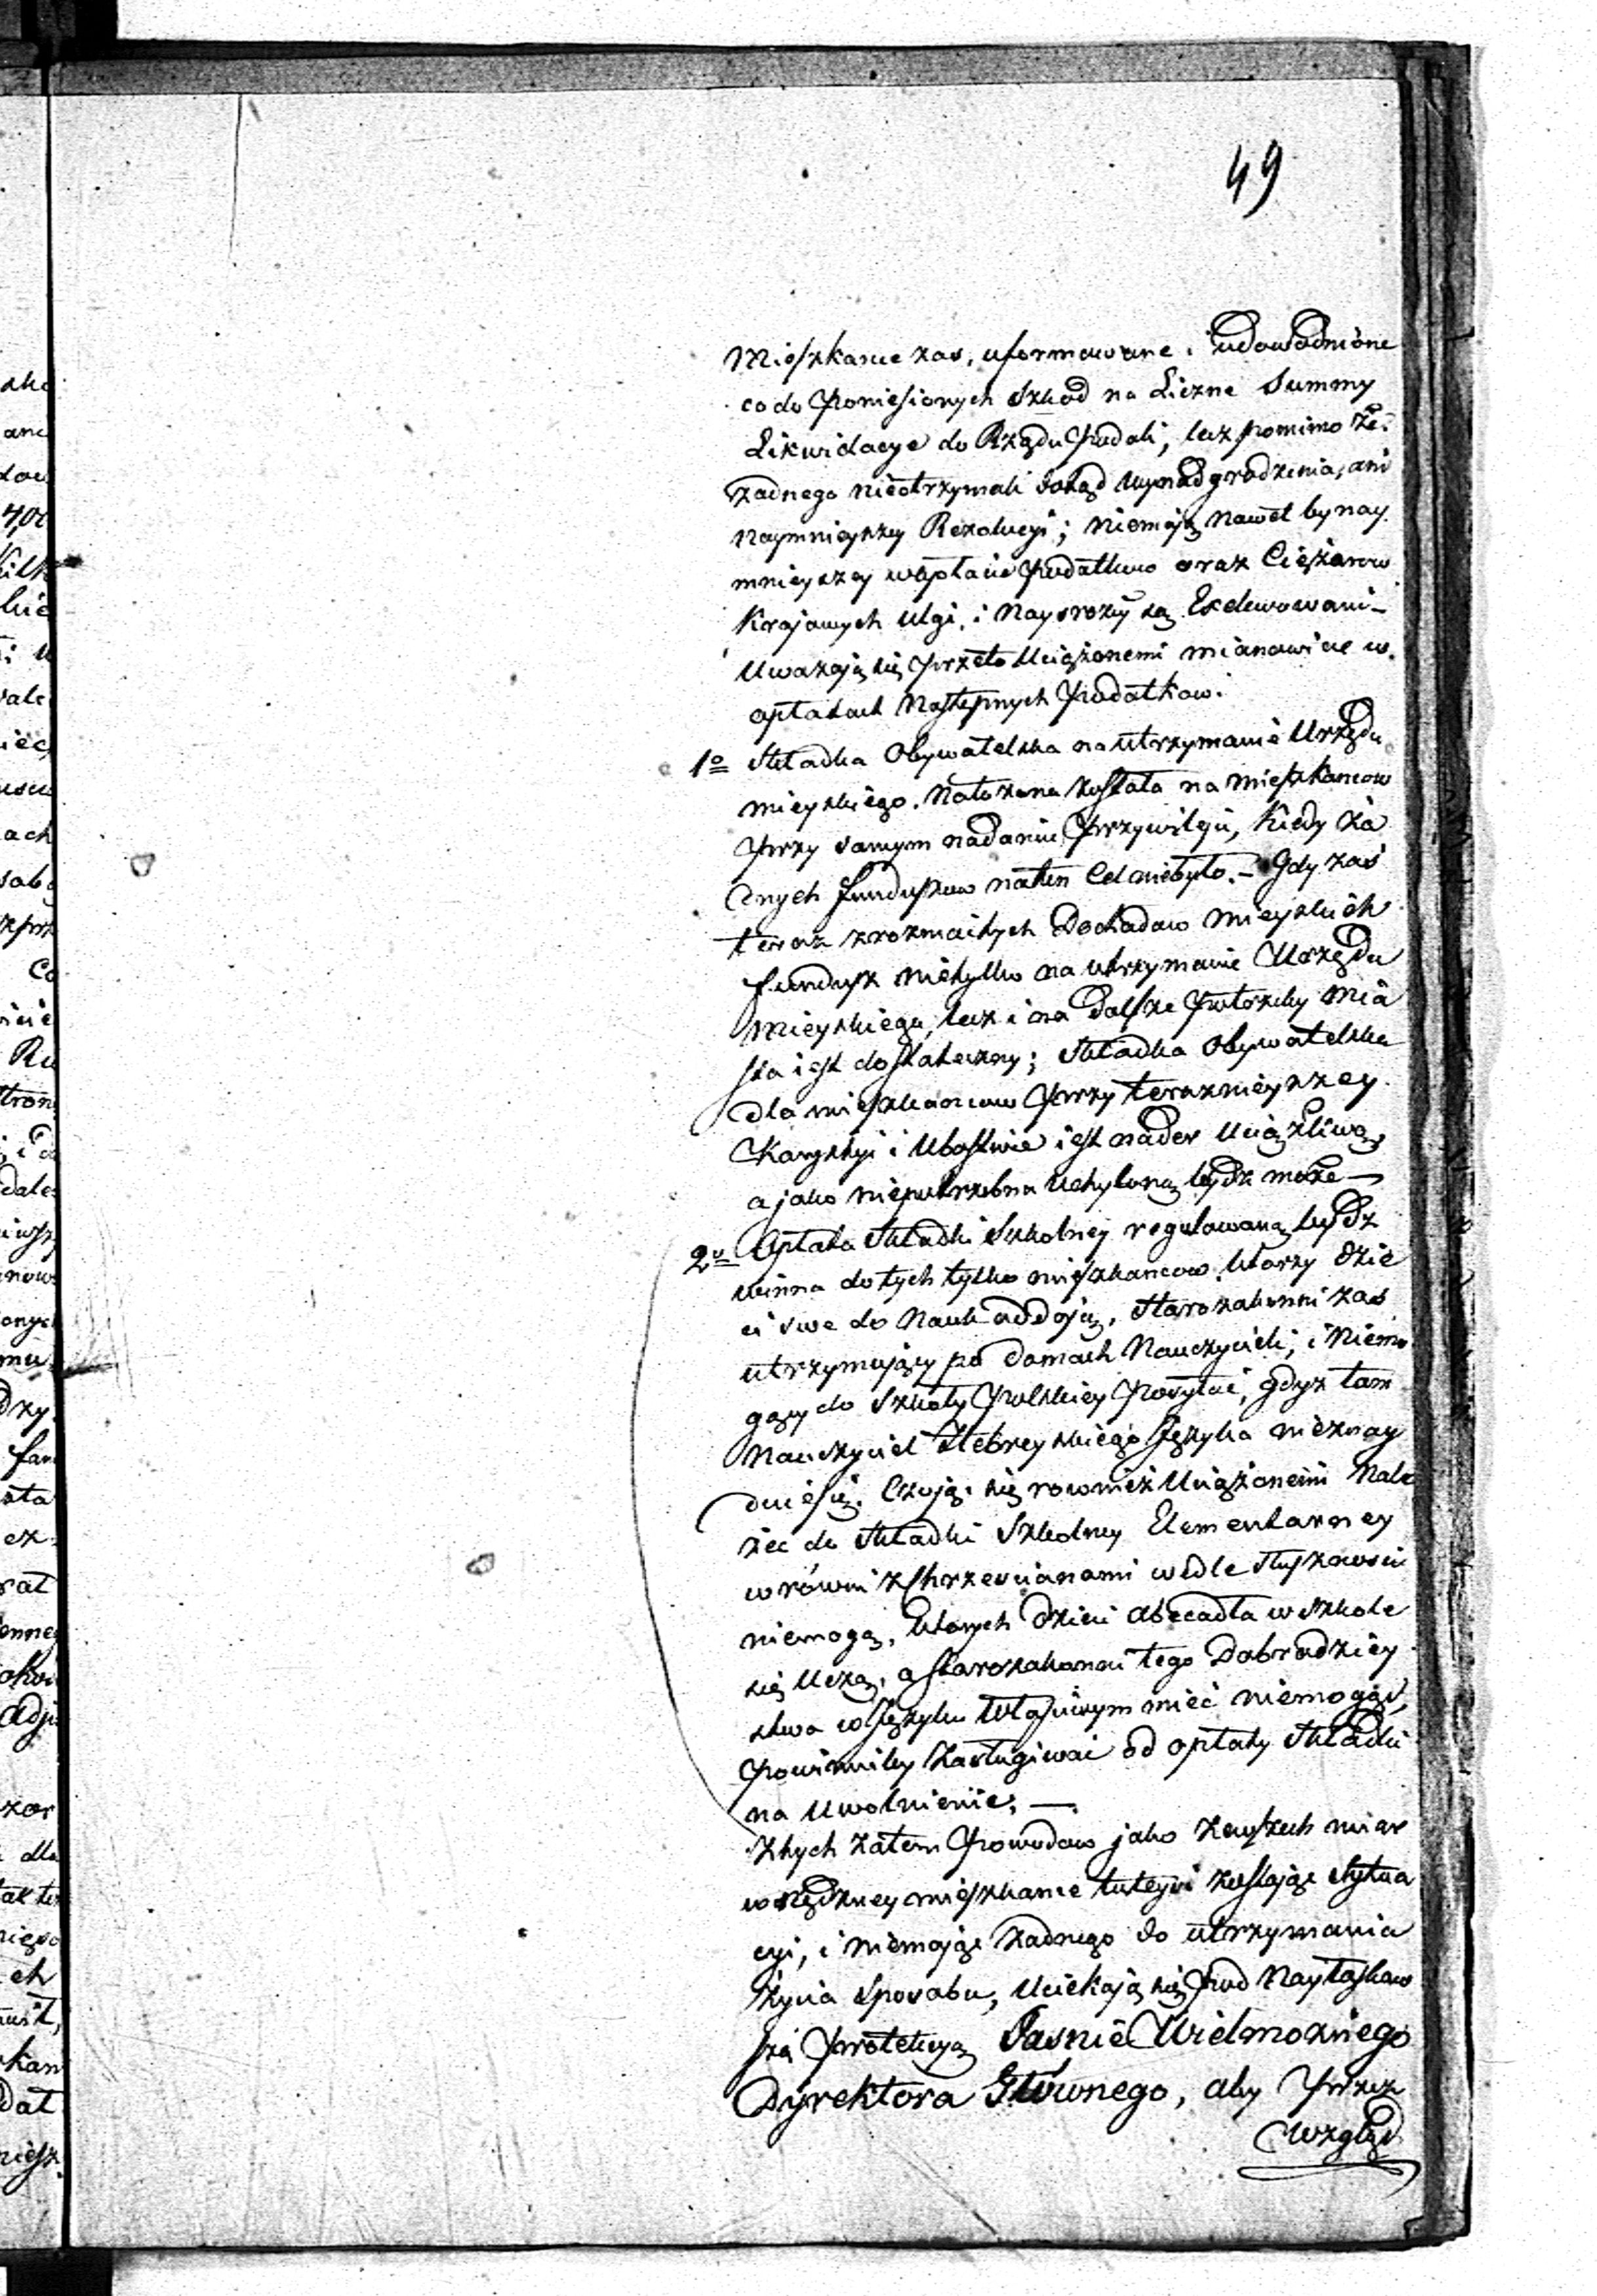 49
Mieszkance zas, uformowane i udowodnione
co do Poniesionych Szkod na Liczne Summy
Likwidacye do Rządu Podali, lecz pomimo że
żadnego nieotrzymali dotąd wynadgrodzenia, ani
naymnieyszey Rezolucyi; niemają nawet bynay
mnieyszey w opłacie Podatkow oraz Ciężarow
Krajowych ulgi, i naysrożey są Exekwowani –
Uważają się przeto Uciążonemi mianowicie w
opłatach Następnych Podatkow.
1o Składka Obywatelska na utrzymanie Urzędu
mieyskiego. Nałożona została na mieszkancow
przy samym nadaniu Przywileju, kiedy ża
dnych funduszow na ten Cel niebyło. – Gdy zaś
teraz z rozmaitych Dochodow mieyskich
fundusz nietylko na utrzymanie Urzędu
Mieyskiego, lecz i na dalsze Potrzeby Mia
sta iest dostateczny; Składka Obywatelska
dla mieszkancow Przy terazmieyszey
Karystyi i Ubostwie iest nader Uciążliwą,
a jako niepotrzebna Uchyloną bydź może –
2o Opłata Składki Szkolney regulowaną bydź
winna do tych tylko mieszkancow, ktorzy dzie
ci swe do Nauk oddają, Starozakonni zaś
utrzymujący po domach Nauczycieli, i niemo
gący do Szkoły Polskiey Posyłać, gdyż tam
Nauczyciel Hebreyskiego Języka nieznay
duie się. Czują się rownież Uciążonemi Nale
żeć do Składki Szkolney Elementarney
w równi z Chrzescianami wedle Słuszności
niemogą, ktorych dzieci abecadła w szkole
się Uczą, a starozakonni tego Dobrodziey
stwa w Języku Właściwym mieć niemogąc,
Powinniby Zasługiwać od opłaty Składki
na Uwolnienie. –
Z tych zatem Powodow jako ze wszech miar
w nędzney mieszkance tuteysi zostając Sytua
cyi, i niemając żadnego do utrzymania
życia Sposobu, Uciekają się Pod Nayłaskaw
szą Protekcyą Jasnie Wielmożnego
Dyrektora Głównego, aby Przez
Wzgląd